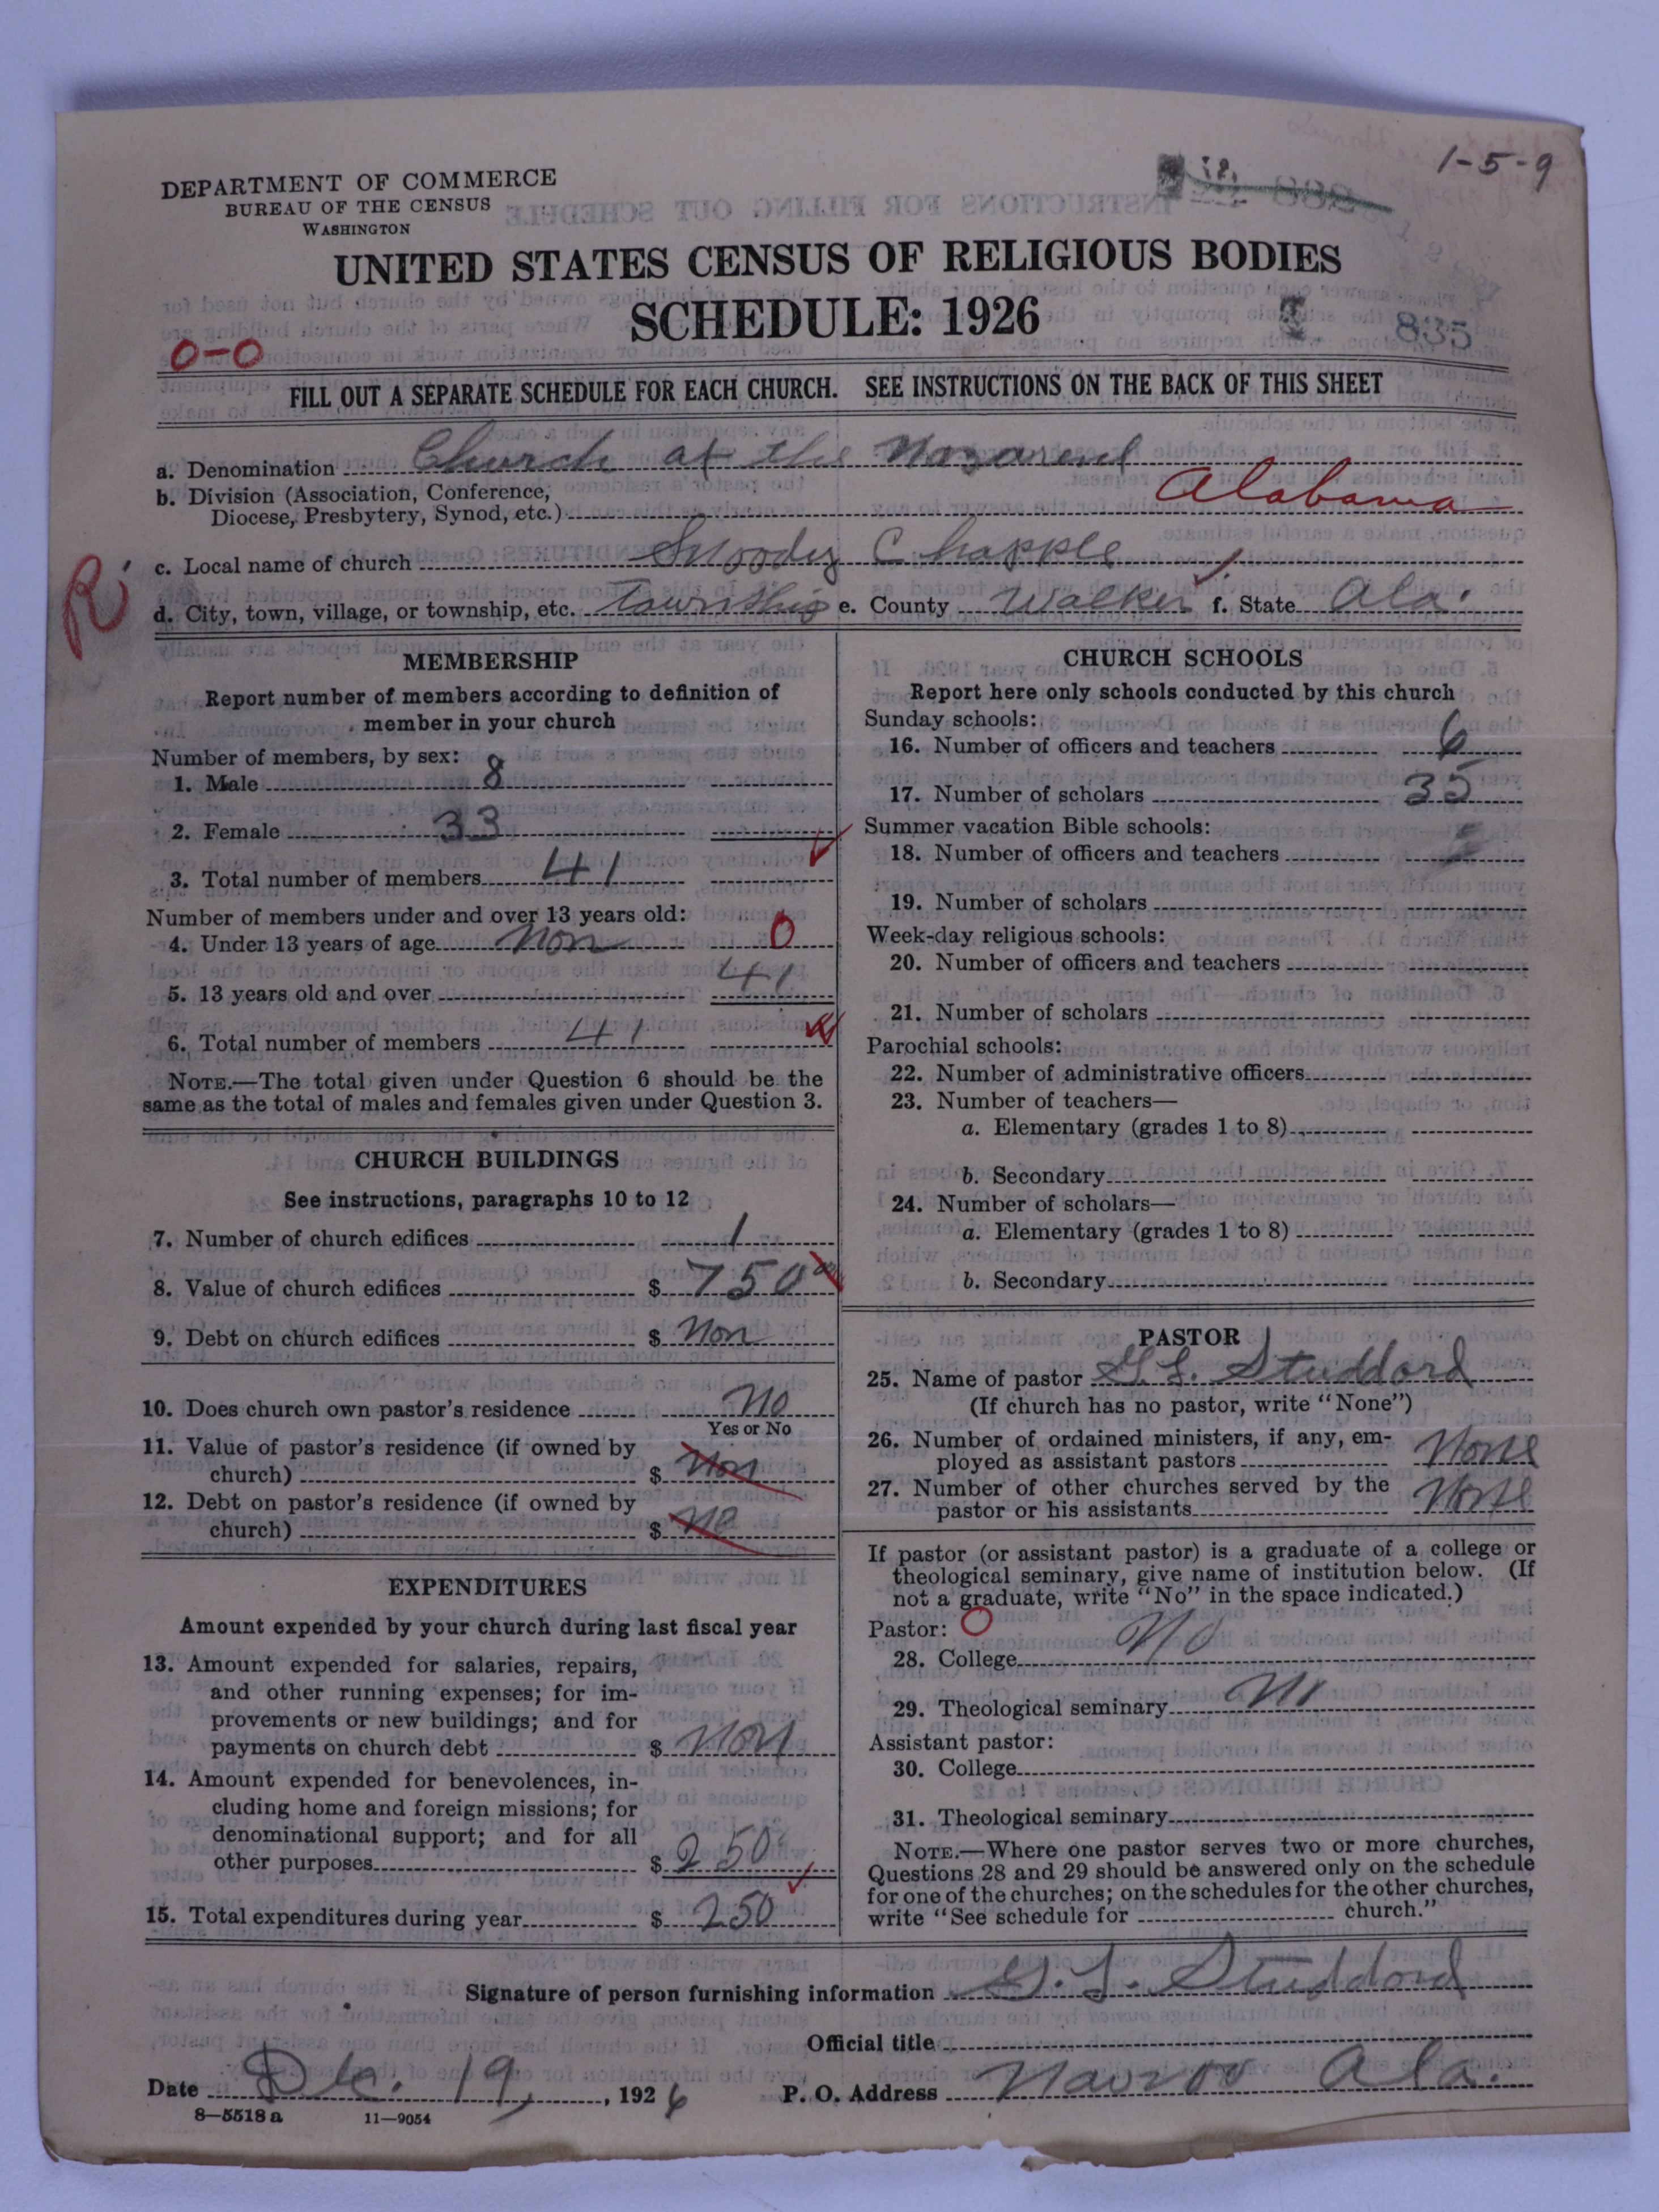 1-5-9
DEPARTMENT OF COMMERCE
BUREAU OF THE CENSUS
WASHINGTON
UNITED STATES CENSUS OF RELIGIOUS BODIES
SCHEDULE: 1926
835
0-0
FILL OUT A SEPARATE SCHEDULE FOR EACH CHURCH. SEE INSTRUCTIONS ON THE BACK OF THIS SHEET
a. Denomination Church of the
b. Division (Association, Conference,
Diocese, Presbytery, Synod, etc.) Alabama
R
c. Local name of church Chapple
d. City, town, village, or township, etc. Township e. County Walker f. State Ala.
MEMBERSHIP
Report number of members according to definition of
member in your church
Number of members, by sex:
1. Male 8
2. Female 33
3. Total number of members 41
Number of members under and over 13 years old:
4. Under 13 years of age Non 0
5. 13 years old and over 41
6. Total number of members 41
NOTE.—The total given under Question 6 should be the
same as the total of males and females given under Question 3.
CHURCH BUILDINGS
See instructions, paragraphs 10 to 12
7. Number of church edifices 1
8. Value of church edifices $ 750 00
9. Debt on church edifices $ Non
10. Does church own pastor's residence no
Yes or No
11. Value of pastor's residence (if owned by
church) $ Non
12. Debt on pastor's residence (if owned by
church) $ no
EXPENDITURES
Amount expended by your church during last fiscal year
13. Amount expended for salaries, repairs,
and other running expenses; for im-
provements or new buildings; and for
payments on church debt $ non
14. Amount expended for benevolences, in-
cluding home and foreign missions; for
denominational support; and for all
other purposes $ 250
15. Total expenditures during year $ 250
CHURCH SCHOOLS
Report here only schools conducted by this church
Sunday schools:
16. Number of officers and teachers 6
17. Number of scholars 35
Summer vacation Bible schools:
18. Number of officers and teachers
19. Number of scholars
Week-day religious schools:
20. Number of officers and teachers
21. Number of scholars
Parochial schools:
22. Number of administrative officers
23. Number of teachers—
a. Elementary (grades 1 to 8)
b. Secondary
24. Number of scholars—
a. Elementary (grades 1 to 8)
b. Secondary
PASTOR
25. Name of pastor G. L. Studdord
(If church has no pastor, write "None")
26. Number of ordained ministers, if any, em-
ployed as assistant pastors None
27. Number of other churches served by the
pastor or his assistants None
If pastor (or assistant pastor) is a graduate of a college or
theological seminary, give name of institution below. (If
not a graduate, write "No" in the space indicated.)
Pastor: O
28. College No
29. Theological seminary No
Assistant pastor:
30. College
31. Theological seminary
NOTE.—Where one pastor serves two or more churches,
Questions 28 and 29 should be answered only on the schedule
for one of the churches; on the schedules for the other churches,
write "See schedule for church."
Signature of person furnishing information G. L. Studdord
Official title
Date Dec. 19, , 1926 P. O. Address Nauvoo Ala.
8—5518a 11—9054